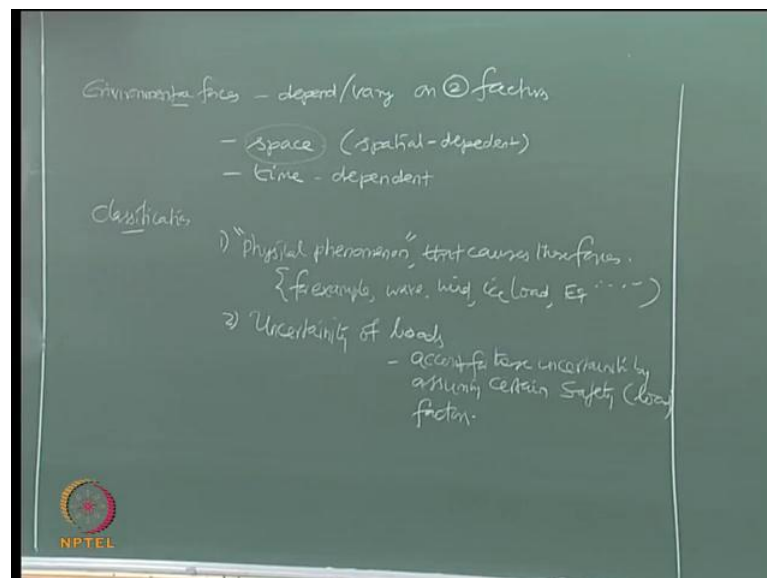 Environmental forces - depend/vary on ② factors
- space (spatial-depedent)
- time - dependent
Classification
1) "Physical phenomenon" that causes these forces.
{for example, wave, wind, ice load, EQ ....)
2) Uncertainity of loads
- account for these uncertainities by
assuming certain Safety (load)
factors.
NPTEL